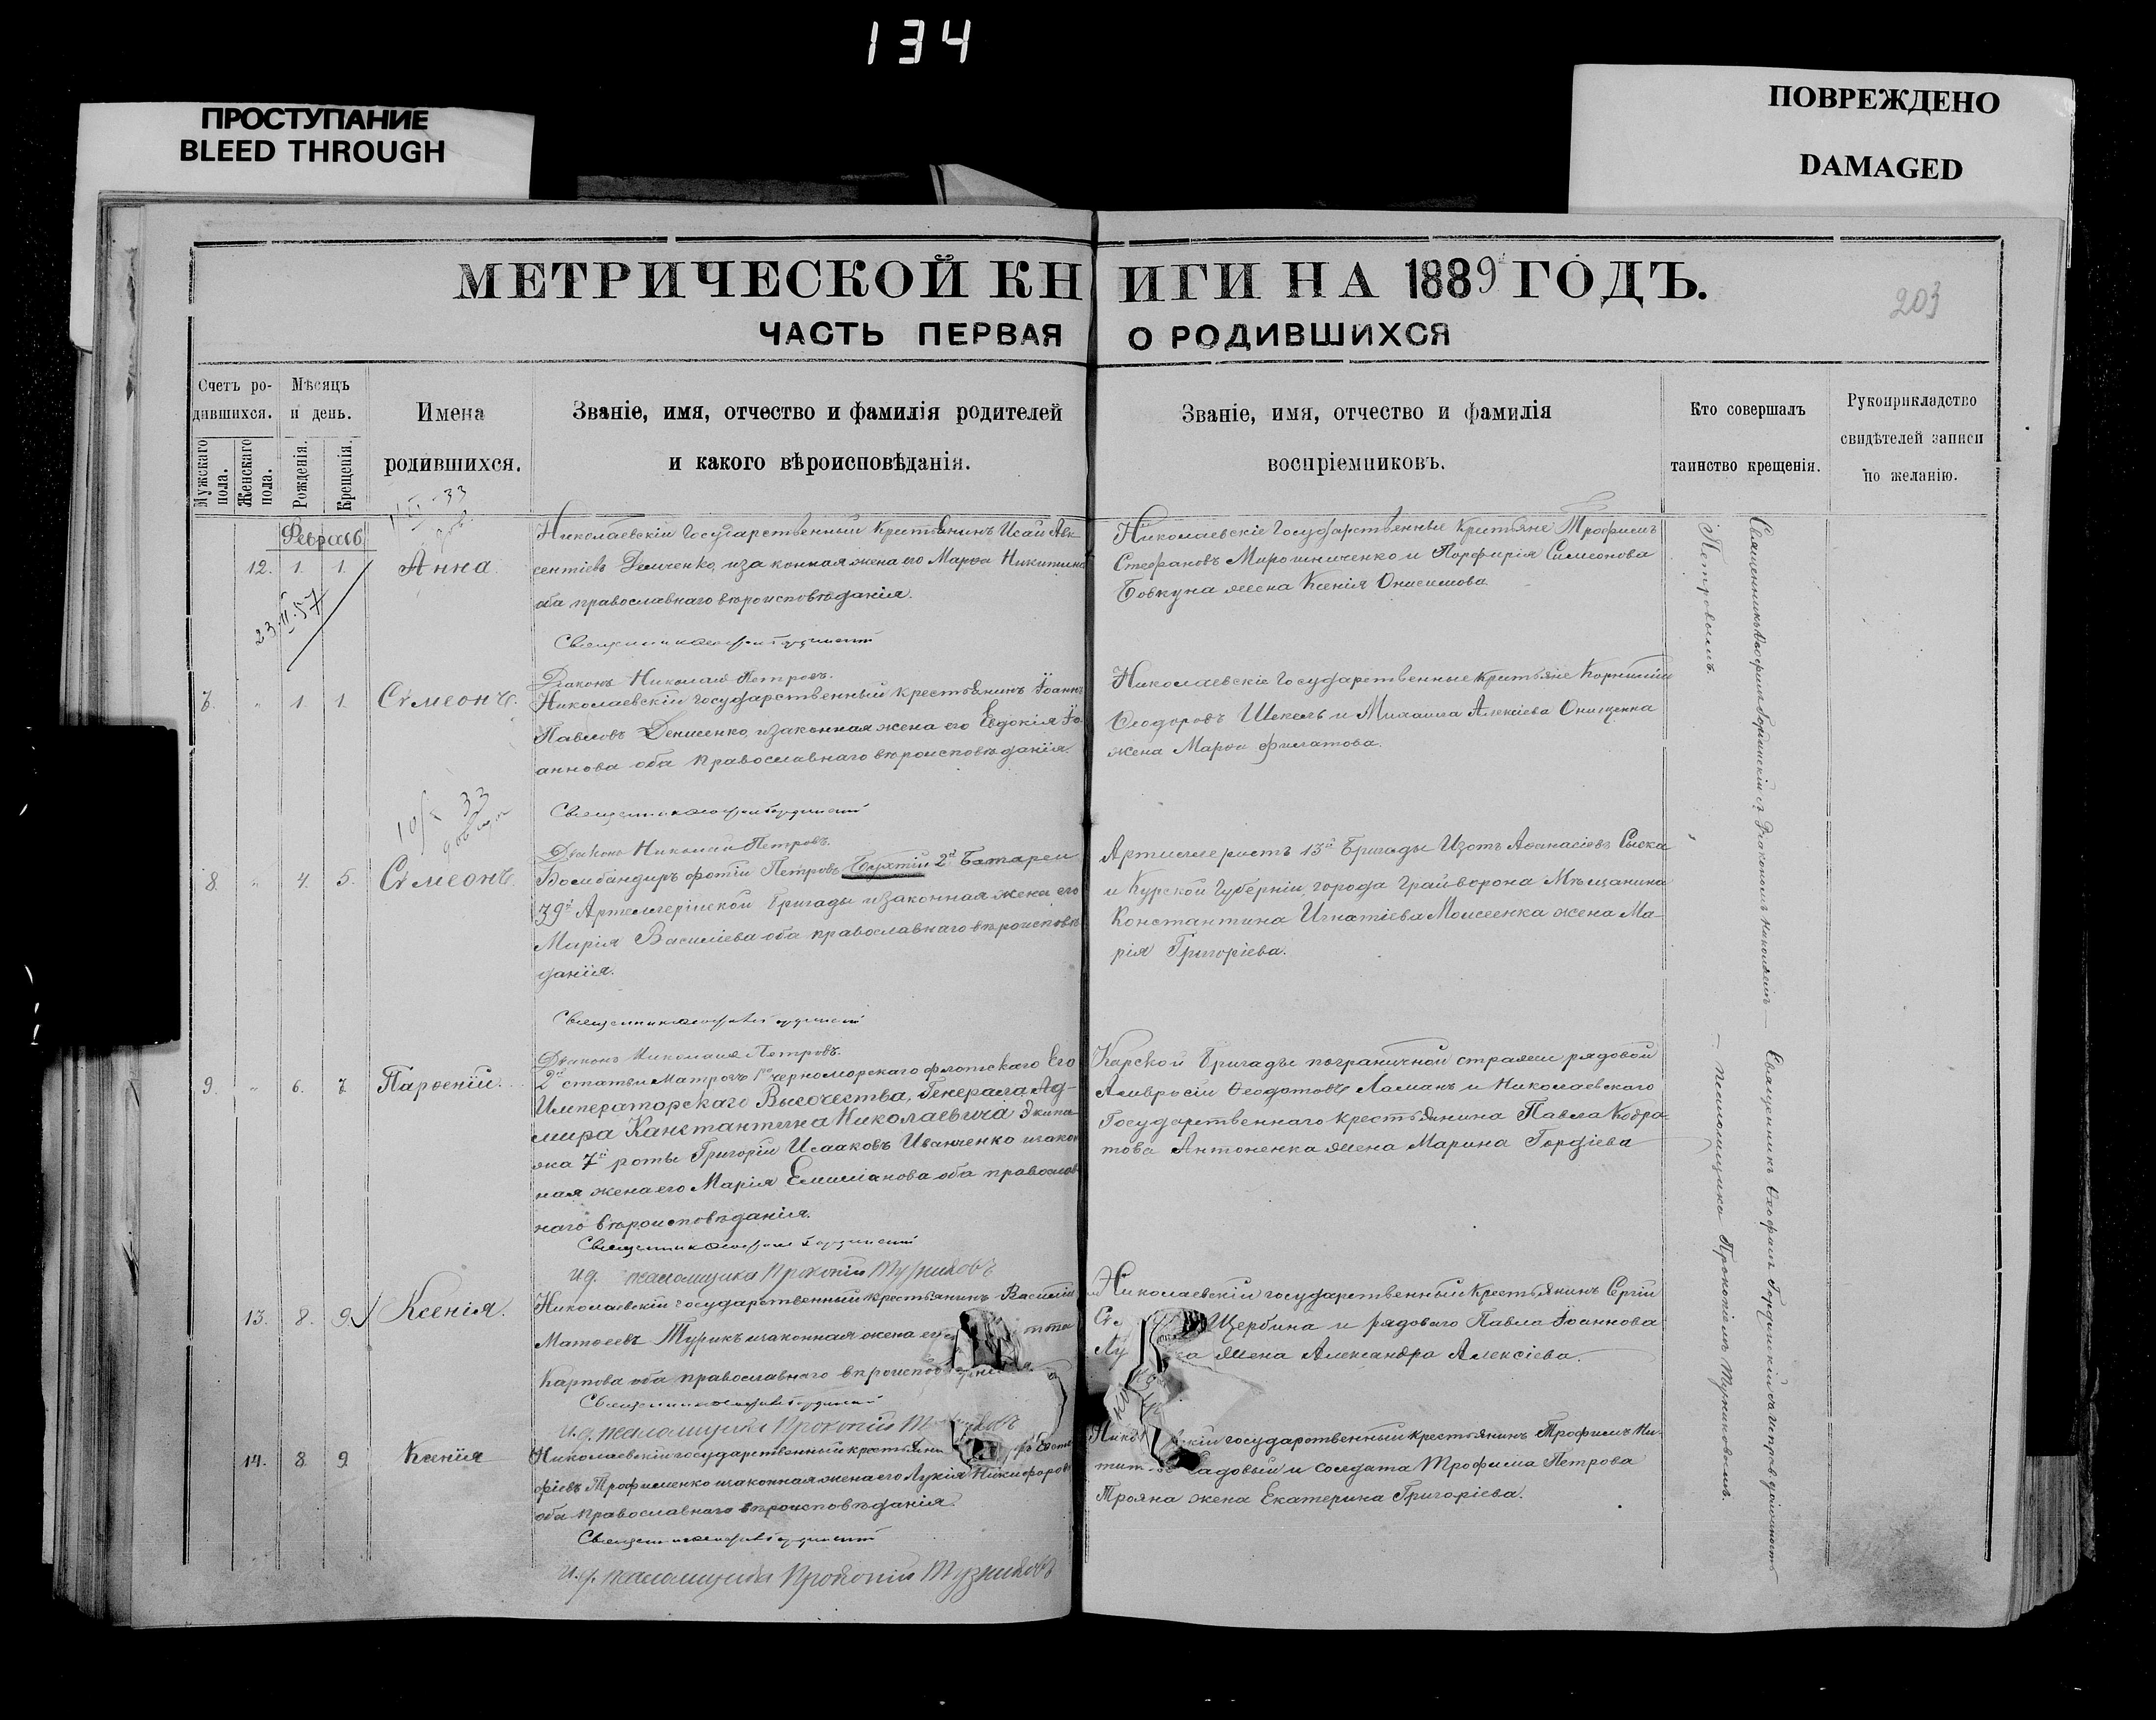 134
ПРОСТУПАНИЕ
BLEED THROUGH
ПОВРЕЖДЕНО
DAMAGED
МЕТРИЧЕСКОЙ КНИГИ НА 1889 ГОДЪ.
203
ЧАСТЬ ПЕРВАЯ О РОДИВШИХСЯ
Счетъ ро-
дившихся.
Мужскаго пола.
Женскаго пола.
Мѣсяцъ
и день.
Рожденія.
Крещенія.
Имена
родившихся.
Званіе, имя, отчество и фамилія родителей
и какого вѣроисповѣданія.
Званіе, имя, отчество и фамилія
воспріемниковъ.
Кто совершалъ
таинство крещенія.
Рукоприкладство
свидѣтелей записи
по желанію.
Февраль
12. 1. 1. Анна.
23.II.57
Николаевскій государственный крестьянинъ Исай Авк-
сентіевъ Демченко, и законная жена его Марѳа Никитина
оба православнаго вѣроисповѣданія.
Николаевскіе государственные крестьяне Трофимъ
Стефановъ Мирошниченко и Порфирія Симеонова
Бовкуна жена Ксенія Онисимова.
Діаконъ Николай Петровъ.
7. " 1. 1. Симеонъ.
Николаевскій государственный крестьянинъ Іоаннъ
Павловъ Денисенко, и законная жена его Евдокія Іо-
аннова оба православнаго вѣроисповѣданія.
Николаевскіе государственные крестьяне Корнилій
Ѳеодоровъ Шекель и Михаила Алексіева Онищенка
жена Марѳа Филатова.
Діаконъ Николай Петровъ.
8. " 4. 5. Симеонъ.
Бомбандиръ Фотій Петровъ 2й Батареи
39й Артиллерійской Бригады и законная жена его
Марія Василіева оба православнаго вѣроисповѣ-
данія.
Артиллеристъ 13й Бригады Изотъ Аѳанасіевъ
и Курской Губерніи, города Грайворона Мѣщанина
Константина Игнатіева Моисеенка жена Ма-
рія Григоріева.
Діаконъ Николай Петровъ.
9. " 6. 7. Парѳеній.
2й статьи Матросъ 1го черноморскаго флотскаго Его
Императорскаго Высочества, Генерала Ад-
мира Канстантина Николаевича Экипа-
жа 7й роты Григорій Исааковъ Иванченко и закон
ная жена его Марія Емиліанова оба православ
наго вѣроисповѣданія.
Карской Бригады пограничной стражи рядовой
Амвросій Ѳеодотовъ Ломанъ и Николаевскаго
Государственнаго крестьянина Павла Кодра-
това Антоненка жена Марина Гордіева
И.д. псаломщика Прокопій
13. 8. 9. Ксенія.
Николаевскій государственный крестьянинъ Василій
Матѳеевъ Турикъ и законная жена его
Карпова оба православнаго вѣроисповѣданія.
Николаевскій государственный крестьянинъ Сергій
Щербина и рядоваго Павла Іоаннова
жена Александра Алексіева.
И.д. псаломщика Прокопій
14. 8. 9. Ксенія
Николаевскій государственный крестьяни
фіевъ Трофименко и законная жена его Лукія Никифорова
оба православнаго вѣроисповѣданія.
государственный крестьянинъ Трофимъ Ни-
Садовый и солдата Трофима Петрова
Трояна жена Екатерина Григоріева.
И.д. псаломщика Прокопій
Петровымъ.